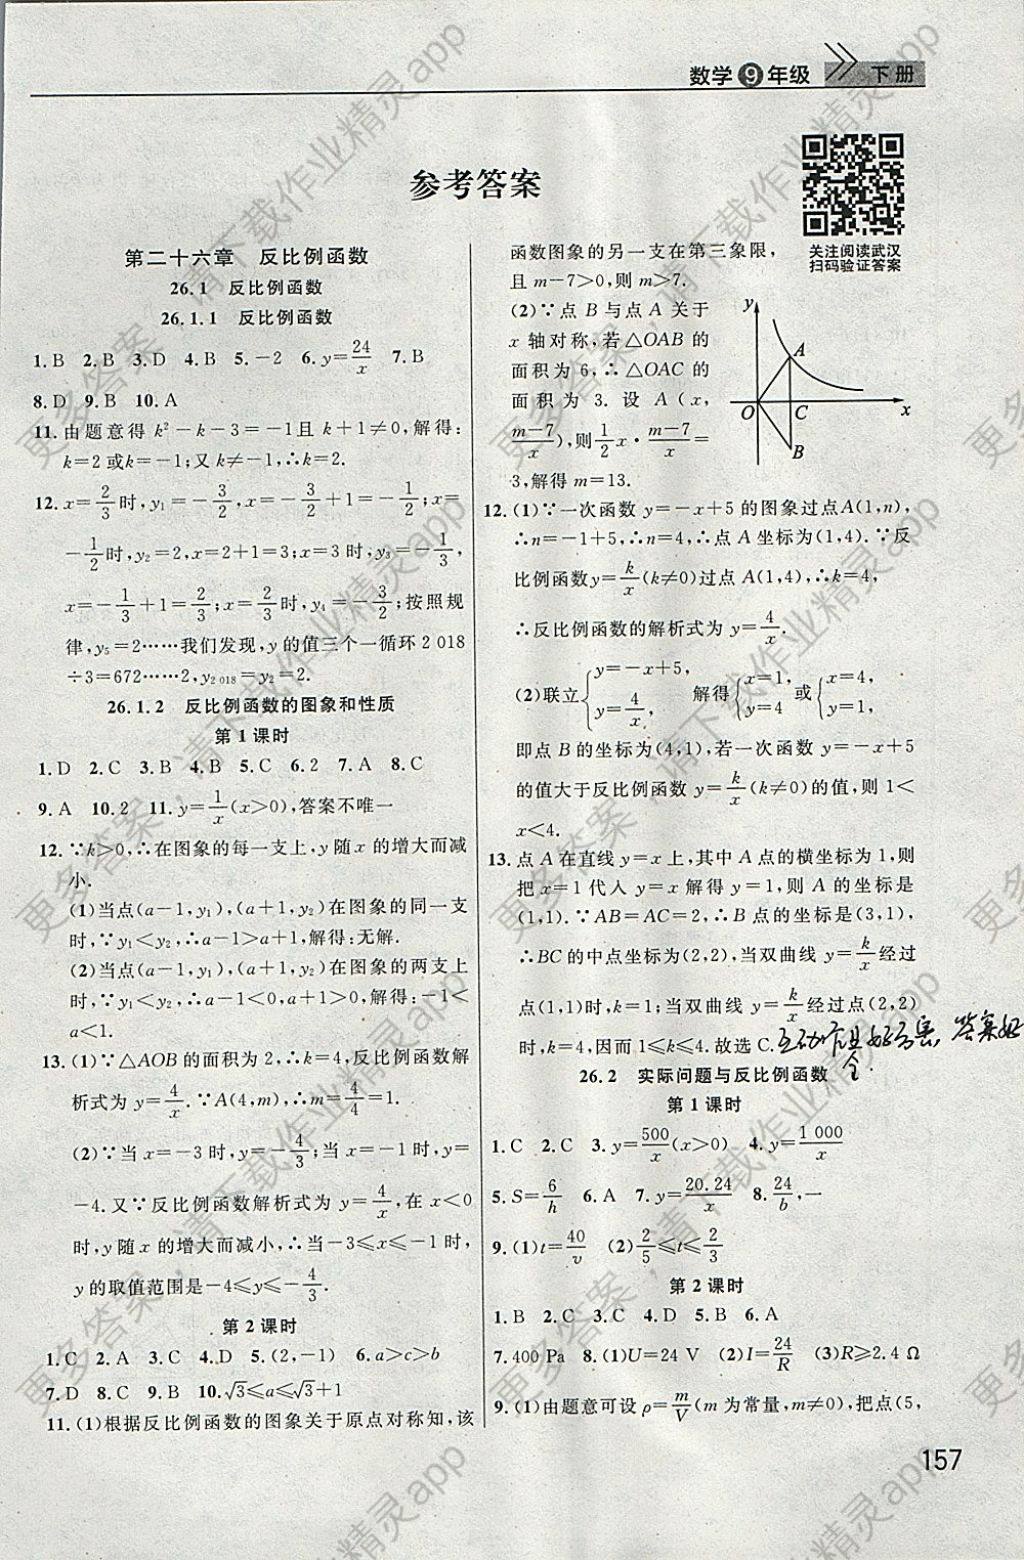 数学9年级 下册
参考答案
关注阅读武汉
扫码验证答案
第二十六章 反比例函数
26.1 反比例函数
26.1.1 反比例函数
1.B 2.B 3.D 4.B 5.-2 6.y=24/x 7.B
8.D 9.B 10.A
11.由题意得 k²-k-3=-1且 k+1≠0,解得:
k=2或k=-1;又k≠-1,∴k=2.
12.x=2/3时,y₁=-3/2,x=-3/2+1=-1/2;x=
-1/2时,y₂=2,x=2+1=3;x=3时,y₃=-1/3,
x=-1/3+1=2/3;x=2/3时,y₄=-3/2;按照规
律,y₅=2……我们发现,y的值三个一循环2 018
÷3=672……2,y₂ ₀₁₈=y₂=2.
26.1.2 反比例函数的图象和性质
第1课时
1.D 2.C 3.B 4.B 5.C 6.2 7.A 8.C
9.A 10.2 11.y=1/x(x>0),答案不唯一
12.∵k>0,∴在图象的每一支上,y随x的增大而减
小.
(1)当点(a-1,y₁),(a+1,y₂)在图象的同一支
时,∵y₁<y₂,∴a-1>a+1,解得:无解.
(2)当点(a-1,y₁),(a+1,y₂)在图象的两支上
时,∵y₁<y₂,∴a-1<0,a+1>0,解得:-1<
a<1.
13.(1)∵△AOB的面积为2,∴k=4,反比例函数解
析式为y=4/x.∵A(4,m),∴m=4/4=1.
(2)∵当x=-3时,y=-4/3;当x=-1时,y=
-4.又∵反比例函数解析式为y=4/x,在x<0
时,y随x的增大而减小,∴当-3≤x≤-1时,
y的取值范围是-4≤y≤-4/3.
第2课时
1.C 2.A 3.C 4.D 5.(2,-1) 6.a>c>b
7.D 8.C 9.B 10.√3≤a≤√3+1
11.(1)根据反比例函数的图象关于原点对称知,该
函数图象的另一支在第三象限,
且m-7>0,则m>7.
(2)∵点B与点A关于
x轴对称,若△OAB的
面积为6,∴△OAC的
面积为3.设A(x,
(m-7)/x),则1/2x·(m-7)/x=
3,解得m=13.
y
A
O
C
x
B
12.(1)∵一次函数y=-x+5的图象过点A(1,n),
∴n=-1+5,∴n=4,∴点A坐标为(1,4).∵反
比例函数y=k/x(k≠0)过点A(1,4),∴k=4,
∴反比例函数的解析式为y=4/x.
(2)联立{y=-x+5, y=4/x, 解得{x=1, y=4 或{x=4, y=1,
即点B的坐标为(4,1),若一次函数y=-x+5
的值大于反比例函数y=k/x(k≠0)的值,则1<
x<4.
13.点A在直线y=x上,其中A点的横坐标为1,则
把x=1代入y=x解得y=1,则A的坐标是
(1,1).∵AB=AC=2,∴B点的坐标是(3,1),
∴BC的中点坐标为(2,2),当双曲线y=k/x经过
点(1,1)时,k=1;当双曲线y=k/x经过点(2,2)
时,k=4,因而1≤k≤4.故选C.
答案好
全.
26.2 实际问题与反比例函数
第1课时
1.C 2.C 3.y=500/x(x>0) 4.y=1 000/x
5.S=6/h 6.A 7.y=20.24/x 8.24/b,一
9.(1)t=40/v (2)2/5≤t≤2/3
第2课时
1.B 2.C 3.C 4.D 5.B 6.A
7.400 Pa 8.(1)U=24 V (2)I=24/R (3)R≥2.4 Ω
9.(1)由题意可设ρ=m/V(m为常量,m≠0),把点(5,
157
更多答案,请下载作业精灵app